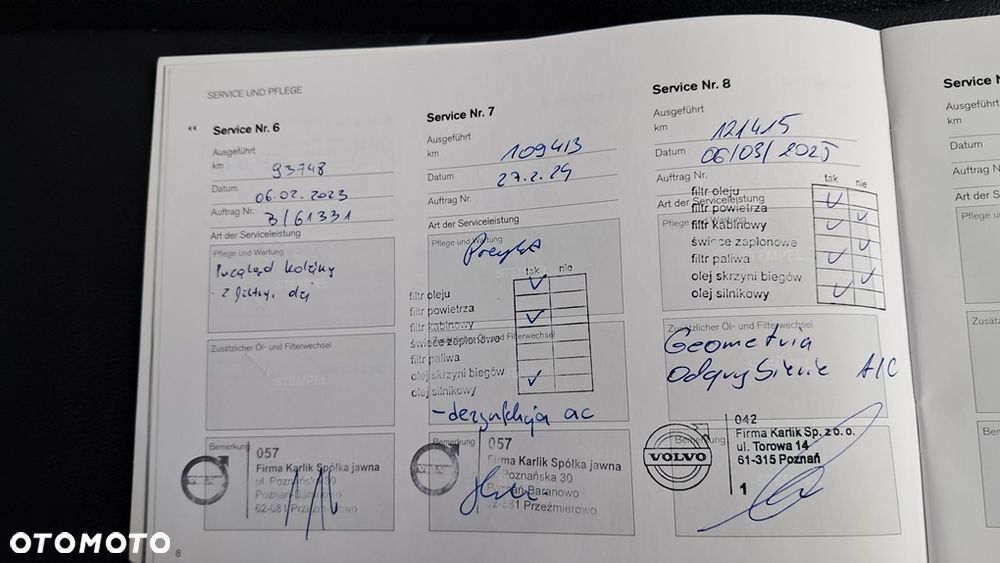 SERVICE UND PFLEGE
Service Nr. 6
Ausgeführt
km 93748
Datum 06.02.2023
Auftrag Nr. 3/61331
Art der Serviceleistung
Pflege und Wartung
Przegląd kolejny
- 2 filtry, olej
Zusätzlicher Öl- und Filterwechsel
STEMPEL
Bemerkung
057
Firma Karlik Spółka jawna
ul. Poznańska 30
Poznań-Baranowo
62-081 Przeźmierowo
8
Service Nr. 7
Ausgeführt
km 109413
Datum 27.2.24
Auftrag Nr.
Art der Serviceleistung
Pflege und Wartung
tak nie
filtr oleju
filtr powietrza
filtr kabinowy
świece zapłonowe
filtr paliwa
olej skrzyni biegów
olej silnikowy
Zusätzlicher Öl- und Filterwechsel
- dezynfekcja ac
Bemerkung
057
Firma Karlik Spółka jawna
ul. Poznańska 30
Poznań-Baranowo
62-081 Przeźmierowo
Service Nr. 8
Ausgeführt
km 121415
Datum 06/03/2025
Auftrag Nr.
tak nie
Art der Serviceleistung
Pflege und Wartung
filtr oleju
filtr powietrza
filtr kabinowy
świece zapłonowe
filtr paliwa
olej skrzyni biegów
olej silnikowy
Zusätzlicher Öl- und Filterwechsel
Geometria
Odgrzybienie A/C
Bemerkung
VOLVO
042
Firma Karlik Sp. z o. o.
ul. Torowa 14
61-315 Poznań
1
Service N
Ausgeführt
km
Datum
Auftrag Nr.
Art der Ser
Pflege und
Zusätzlic
Bemer
OTOMOTO